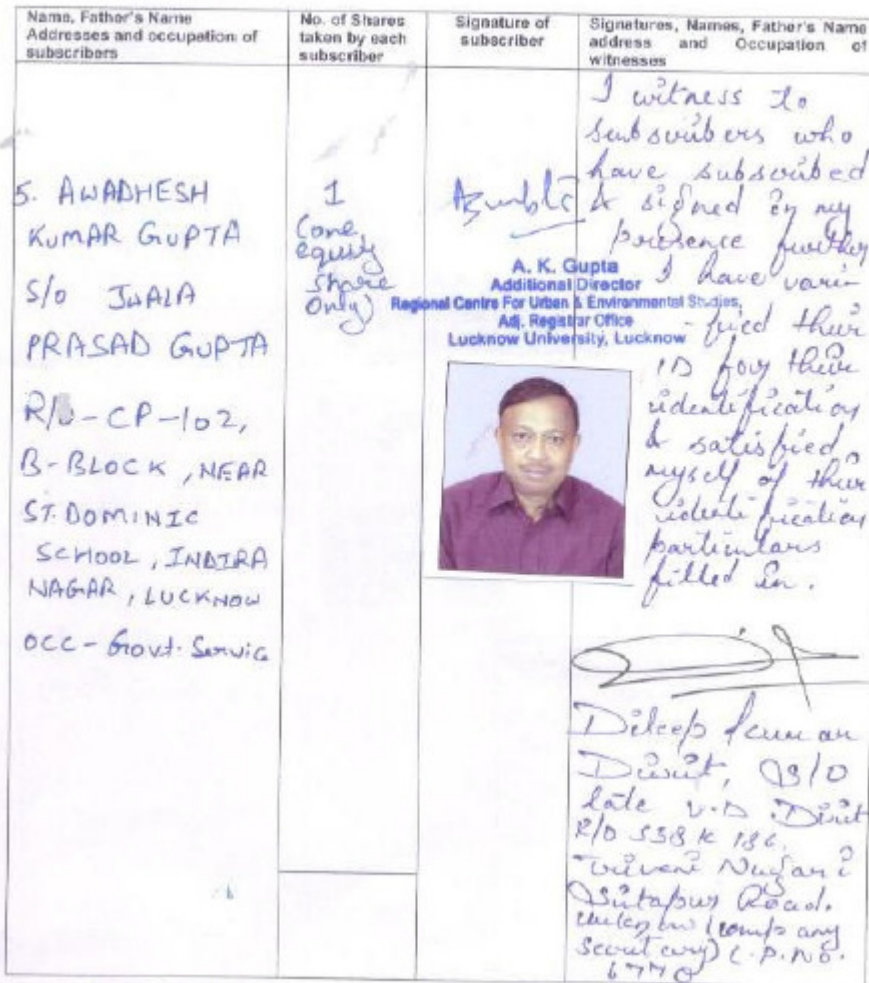 Name, Father's Name
Addresses and occupation of
subscribers
No. of Shares
taken by each
subscriber
Signature of
subscriber
Signatures, Names, Father's Name
address and Occupation of
witnesses
5. AWADHESH
KUMAR GUPTA
S/o JWALA
PRASAD GUPTA
R/o-CP-102,
B-BLOCK, NEAR
ST. DOMINIC
SCHOOL, INDIRA
NAGAR, LUCKNOW
OCC- Govt. Service
1
(one
equity
share
only)
A. K. Gupta
Additional Director
Regional Centre For Urban & Environmental Studies,
Adj. Registrar Office
Lucknow University, Lucknow
I witness to
subscribers who
have subscribed
& signed in my
presence further
I have veri-
-fied their
ID for their
identification
& satisfied
myself of their
identification
particulars
filled in.
Dileep Kumar
Dixit, S/O
late V.D Dixit
R/O 538 K 186,
Triveni Nagar
Sitapur Road,
(company
secretary) C.P.No.
6770